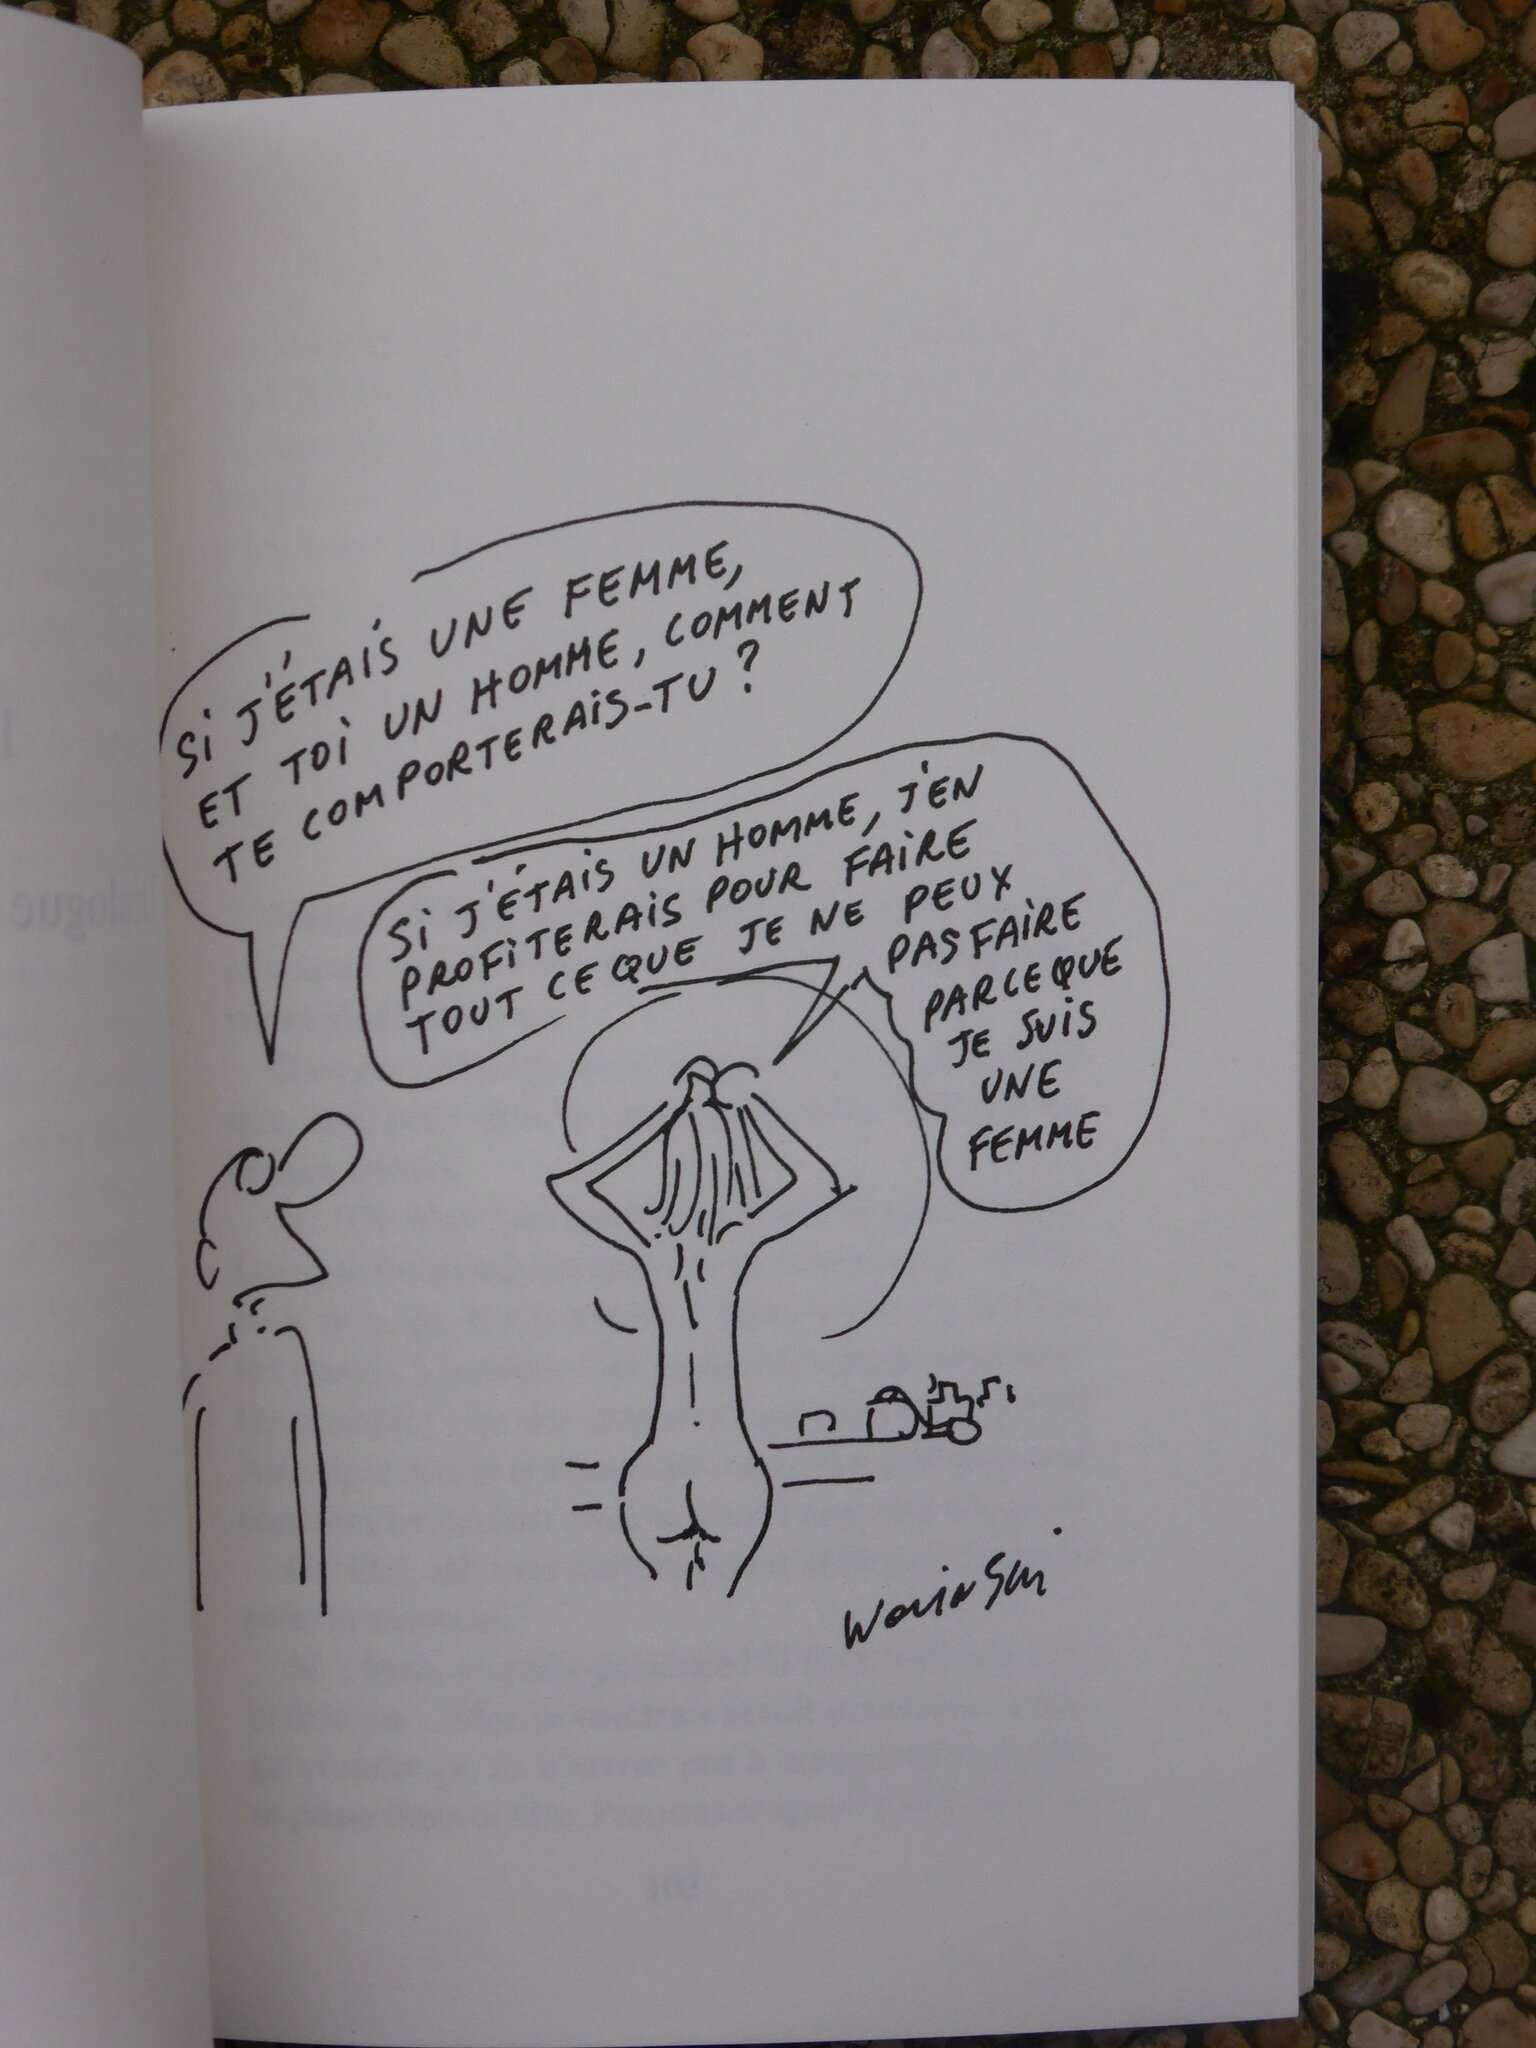 Si J'ÉTAiS UNE FEMME,
ET TOi UN HOMME, COMMENT
TE COMPORTERAiS-TU ?
Si J'ÉTAiS UN HOMME, J'EN
PROFiTERAiS POUR FAiRE
TOUT CE QUE JE NE PEUX
PAS FAiRE
PARCE QUE
JE SUiS
UNE
FEMME
Wolinski
Dialogue